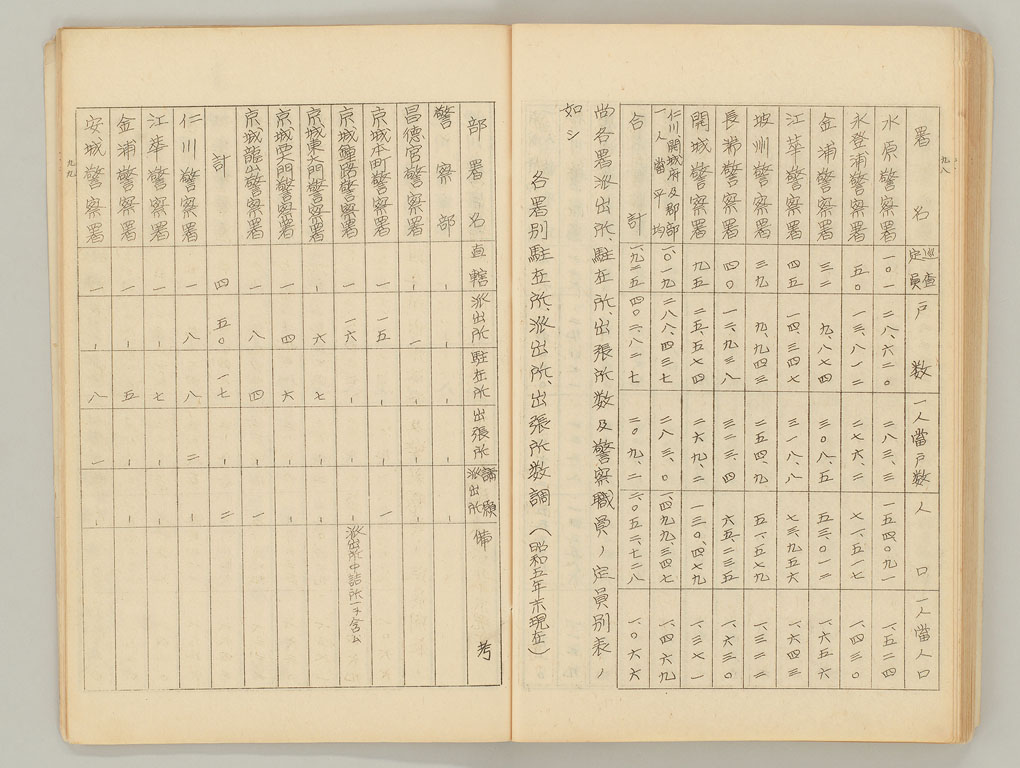 九八
署名 巡査定員 戸数 一人當戸数 人口 一人當人口
水原警察署 一〇一 二八、六二〇 二八三、三 一五四、〇九一 一、五二四
永登浦警察署 五〇 一三、八一二 二七六、二 七一、五一七 一、四三〇
金浦警察署 三二 九、八七四 三〇八、五 五三、〇一二 一、六五六
江華警察署 四五 一四、三四七 三一八、八 七三、九五六 一、六四三
坡州警察署 三九 九、九四三 二五四、九 五一、五七九 一、三二二
長湍警察署 四〇 一二、九三八 三二三、四 六五、二三五 一、六三〇
開城警察署 九五 二五、五七四 二六九、二 一三〇、四七九 一、三七一
仁川、開城府及郡部一人當平均 一、〇一九 二八八、四三七 二八三、〇 一、四九九、三四七 一、四六九
合計 一、九二五 四〇二、八二七 二〇九、二 二、〇五二、七二八 一、〇六六
尚各署派出所、駐在所、出張所数及警察職員ノ定員別表ノ
如シ
各署別駐在所、派出所、出張所数調 (昭和五年末現在)
部署名 直轄 派出所 駐在所 出張所 請願派出所 備考
警察部 一 - - - -
昌德宮警察署 一 一 - - -
京城本町警察署 一 一五 - - 一
京城鍾路警察署 一 一六 - - - 派出所中詰所一ヲ含ム
京城東大門警察署 一 六 七 - -
京城西大門警察署 一 四 六 - -
京城龍山警察署 一 八 四 - 一
計 四 五〇 一七 - 二
仁川警察署 一 八 八 二 -
江華警察署 一 - 七 - -
金浦警察署 一 - 五 - -
安城警察署 一 - 八 一 -
九九